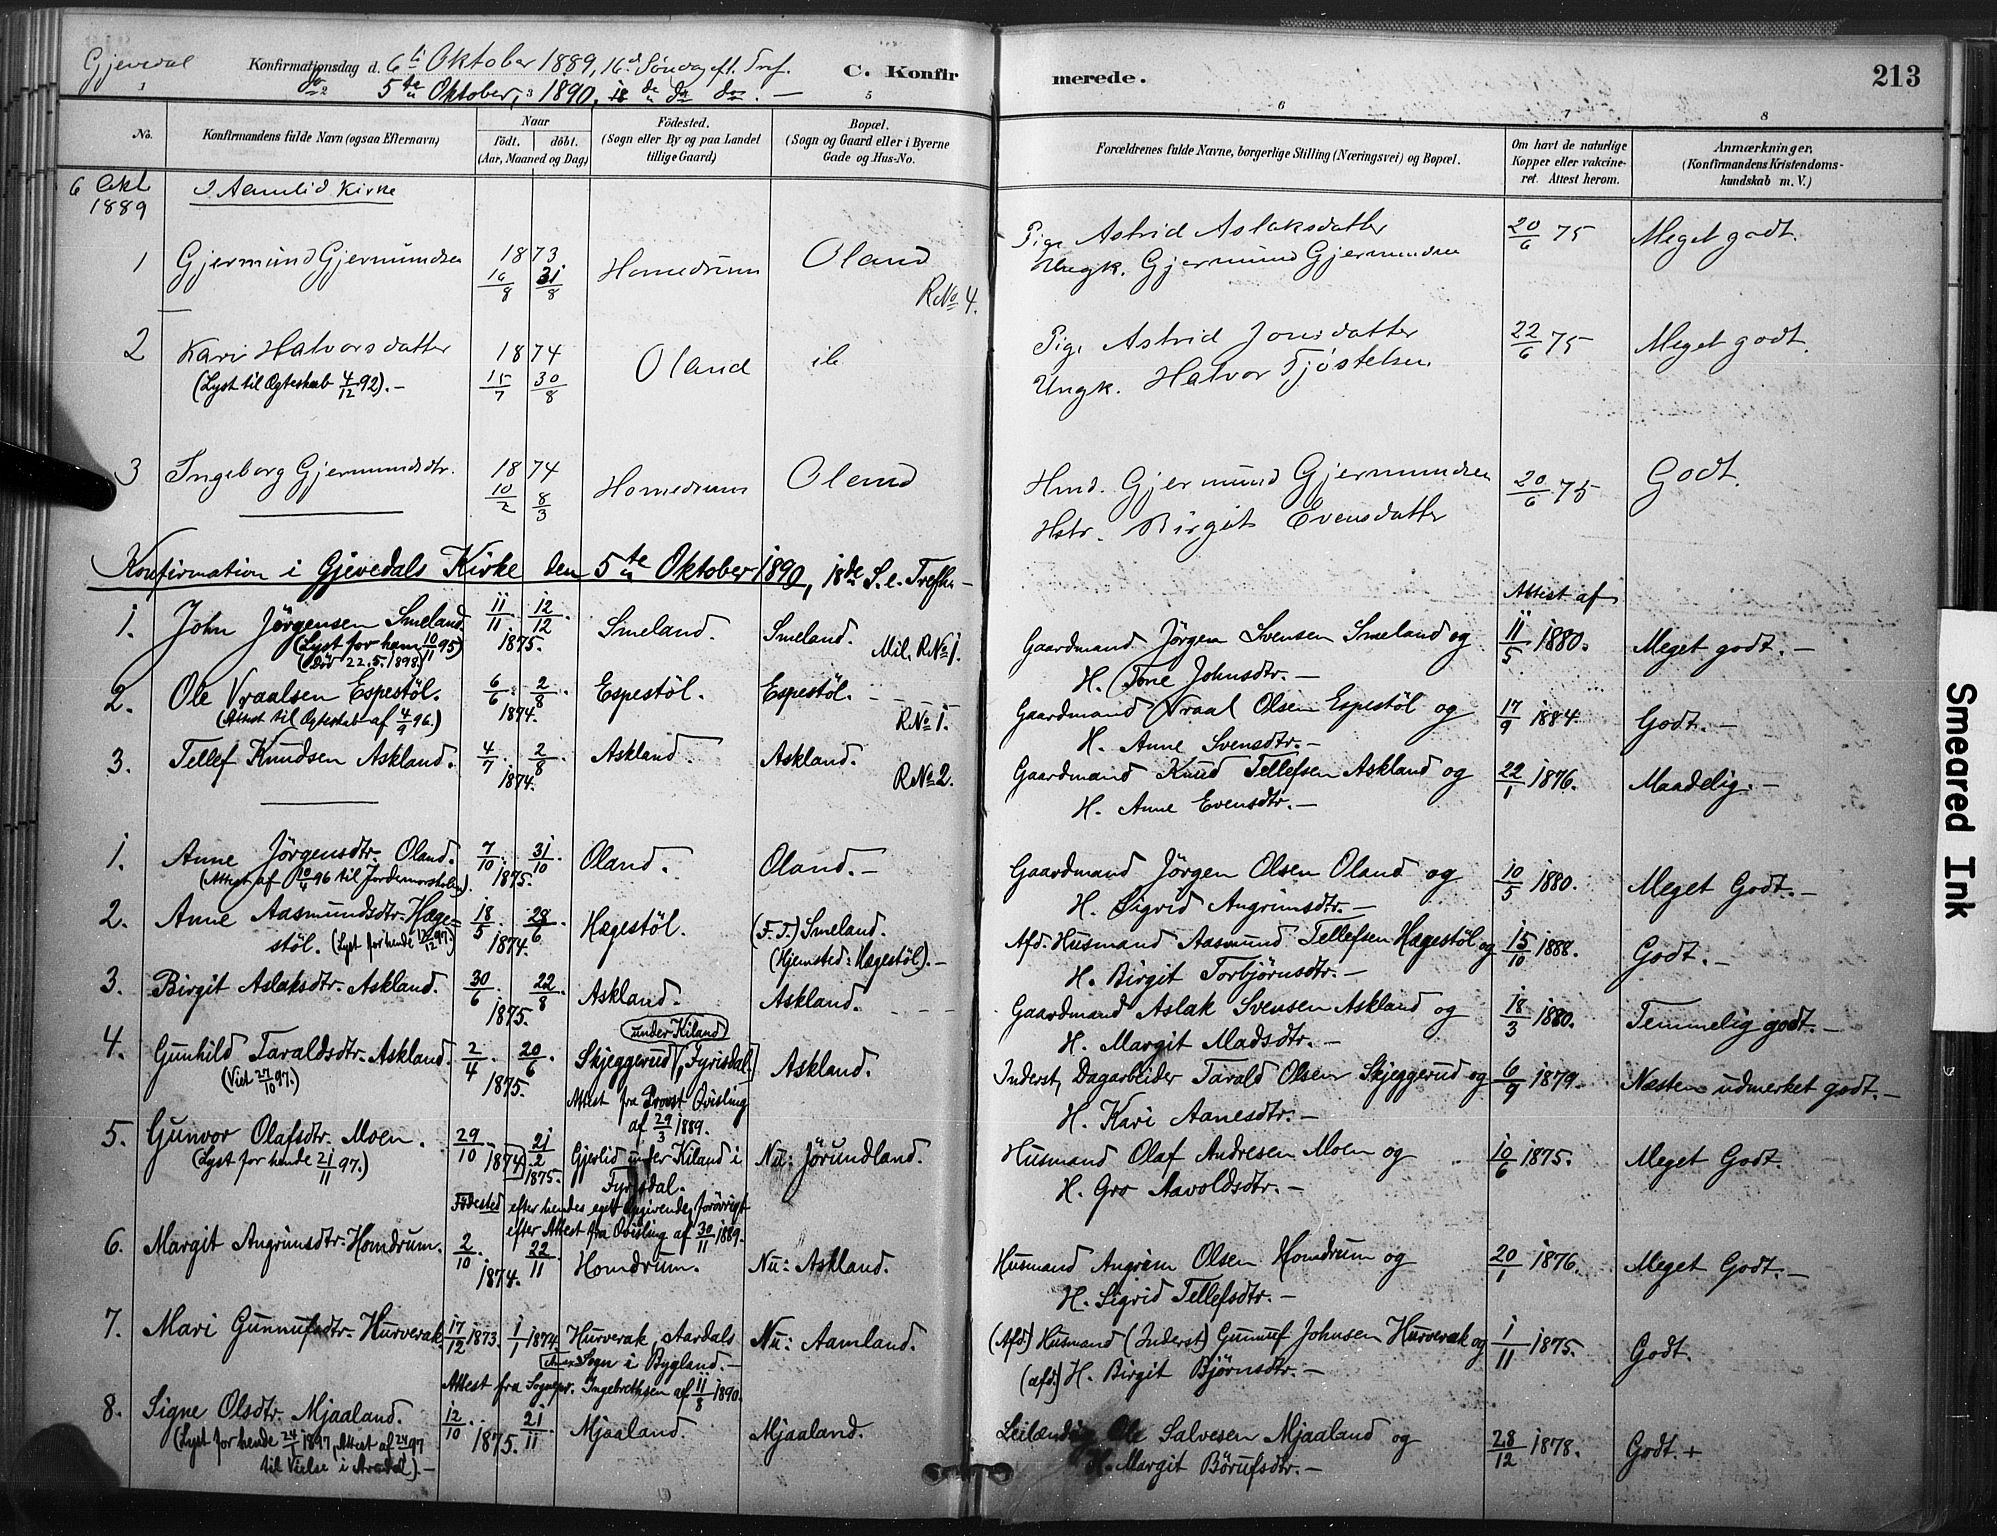 Gjevedal Konfirmationsdag d. 6te Oktober 1889, 16d Søndag eft. Tref. C. Konfirmerede. 213
do 5te Oktober, 1890, 18de do do. —
1 2 3 5 6 7 8
No. Konfirmandens fulde Navn (ogsaa Efternavn) Naar født. døbt. (Aar, Maaned og Dag) Fødested. (Sogn eller By og paa Landet tillige Gaard) Bopæl. (Sogn og Gaard eller i Byerne Gade og Hus-No. Forældrenes fulde Navne, borgerlige Stilling (Næringsvei) og Bopæl. Om havt de naturlige Kopper eller vakcineret. Attest herom. Anmærkninger. (Konfirmandens Kristendomskundskab m. V.)
6 Okt 1889 I Aamlid Kirke
1 Gjermund Gjermundsen 1873 16/8 31/8 Homedrum Oland R No 4. Pige Astrid Aslaksdatter 20/6 75 Meget godt.
Ungk. Gjermund Gjermundsen
2 Kari Halvorsdatter 1874 15/7 30/8 Oland ib Pige Astrid Jonsdatter 22/6 75 Meget godt.
(Lyst til Ægteskab 4/12 92). — Ungk. Halvor Tjøstelsen
3 Ingeborg Gjermundsdtr. 1874 10/2 8/3 Homedrum Oland Hmd. Gjermund Gjermundsen 20/6 75 Godt.
Hstr. Birgit Evensdatter
Konfirmation i Gjevedals Kirke den 5te Oktober 1890, 18de S. e. Trefh. —
Attest af
1. John Jörgensen Smeland. 11/11. 12/12 1875. Smeland. Smeland. Mil. R No 1. Gaardmand Jörgen Svensen Smeland og 11/5 1880. Meget godt. —
(Lyst for ham 10/11 95) H. Tone Johnsdtr. —
(död 22.5.1898)
2. Ole Vraalsen Espestöl. 6/6. 2/8. 1874. Espestöl. Espestöl. R No 1. Gaardmand Vraal Olsen Espestöl og 17/9 1884. Godt. —
(Attest til Ægteskab af 4/9 96.) H. Anne Svensdtr. —
3. Tellef Knudsen Askland. 4/7. 2/8. 1874. Askland. Askland. R No 2. Gaardmand Knud Tellefsen Askland og 22/1 1876. Maadelig. —
H. Anne Evensdtr. —
1. Anne Jörgensdtr. Oland. 7/10. 31/10. 1875. Oland. Oland. — Gaardmand Jörgen Olsen Oland og 10/5 1880. Meget Godt. —
(Attest af 10/4 96 til Jordemorskolen). H. Sigrid Angrimsdtr. —
2. Anne Aasmundsdtr. Hægestöl. 18/5 28/6 1874. Hægestöl. (F. T.) Smeland. Afd. Husmand Aasmund Tellefsen Hægestöl og 15/10 1888. Godt. —
(Lyst for hende 12/12 97.) (Hjemsted: Hægestöl). — H. Birgit Torbjörnsdtr. —
3. Birgit Aslaksdtr. Askland. 30/6. 22/8 1875. Askland. Askland. Gaardmand Aslak Svensen Askland og 18/3 1880. Temmelig godt. —
H. Margit Madsdtr. —
4. Gunhild Taraldsdtr. Askland. 2/4 20/6 1875. under Kiland Skjeggerud, Fyrisdal. Askland. Inderst, Dagarbeider Tarald Olsen Skjeggerud og 6/9 1879. Næsten udmerket godt. —
(Viet 27/10 97.) Attest fra Provst Qvisling af 29/3 1889. H. Kari Aanesdtr. —
5. Gunvor Olafsdtr. Moen. 29/10 1874 21/2 1875. Gjerlid under Kiland i Fyrisdal. Nu: Jörundland. Husmand Olaf Andresen Moen og 10/6 1875. Meget Godt.
(Lyst for hende 21/11 97.) H. Gro Aavoldsdtr. —
Födested efter hendes eget Opgivende, forövrigt
efter Attest fra Qvisling af 30/11 1889.
6. Margit Angrimsdtr. Homdrum. 2/10. 22/11 1874. Homdrum. Nu: Askland. Husmand Angrim Olsen Homdrum og 20/1 1876. Meget Godt. —
H. Sigrid Tellefsdtr. —
7. Mari Gunnufsdtr. Hurverak. 17/12 1873. 1/1 1874. Hurverak, Aardals Nu: Aamland. (Afd.) Husmand (Inderst) Gunnuf Johnsen Hurverak og 1/11 1875. Godt.
Anex Sogn i Bygland. — (afd.) H. Birgit Björnsdtr. —
Attest fra Sognepr. Ingebrethsen af 11/8 1890.
8. Signe Olsdtr. Mjaaland. 12/10. 21/11 1875. Mjaaland. Mjaaland. Leilænding Ole Salvesen Mjaaland og 28/12 1878. Godt. +
(Lyst for hende 24/1 1897, Attest af 24/ 97 H. Margit Börufsdtr. —
til Vielse i Arendal). —
Smeared Ink